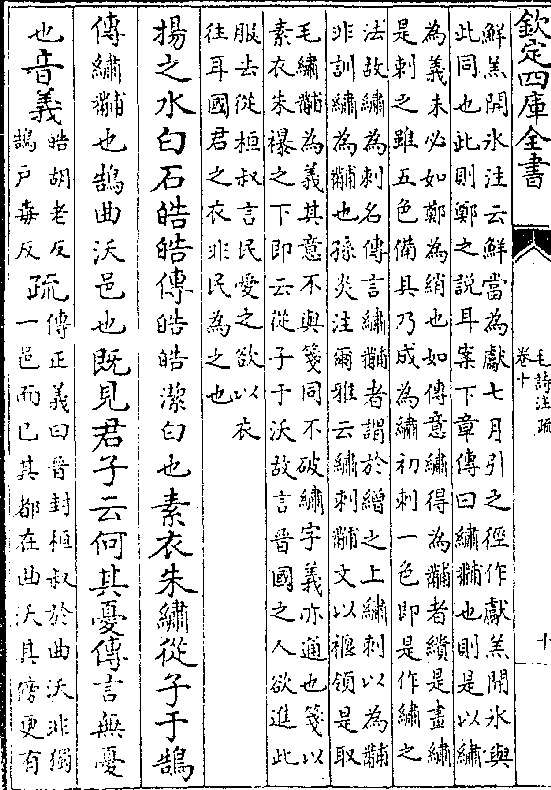 欽定四庫全書
毛詩注疏
卷十
十
鮮羔開氷注云鮮當為獻七月引之徑作獻羔開氷與
此同也此則鄭之說耳案下章傳曰繡黼也則是以繡
為義未必如鄭為綃也如傳意繡得為黼者繢是畫繡
是刺之雖五色備具乃成為繡初刺一色即是作繡之
法故繡為刺名傳言繡黼者謂於繒之上繡刺以為黼
非訓繡為黼也孫炎注爾雅云繡刺黼文以褗領是取
毛繡黼為義其意不與箋同不破繡字義亦通也箋以
素衣朱襮之下即云從子于沃故言晉國之人欲進此
服去從桓叔言民愛之欲以衣
往耳國君之衣非民為之也
揚之水白石皓皓傳皓皓潔白也素衣朱繡從子于鵠
傳繡黼也鵠曲沃邑也既見君子云何其憂傳言無憂
也音義皓胡老反
鵠戸毒反
疏傳正義曰晉封桓叔於曲沃非獨
一邑而已其都在曲沃其傍更有